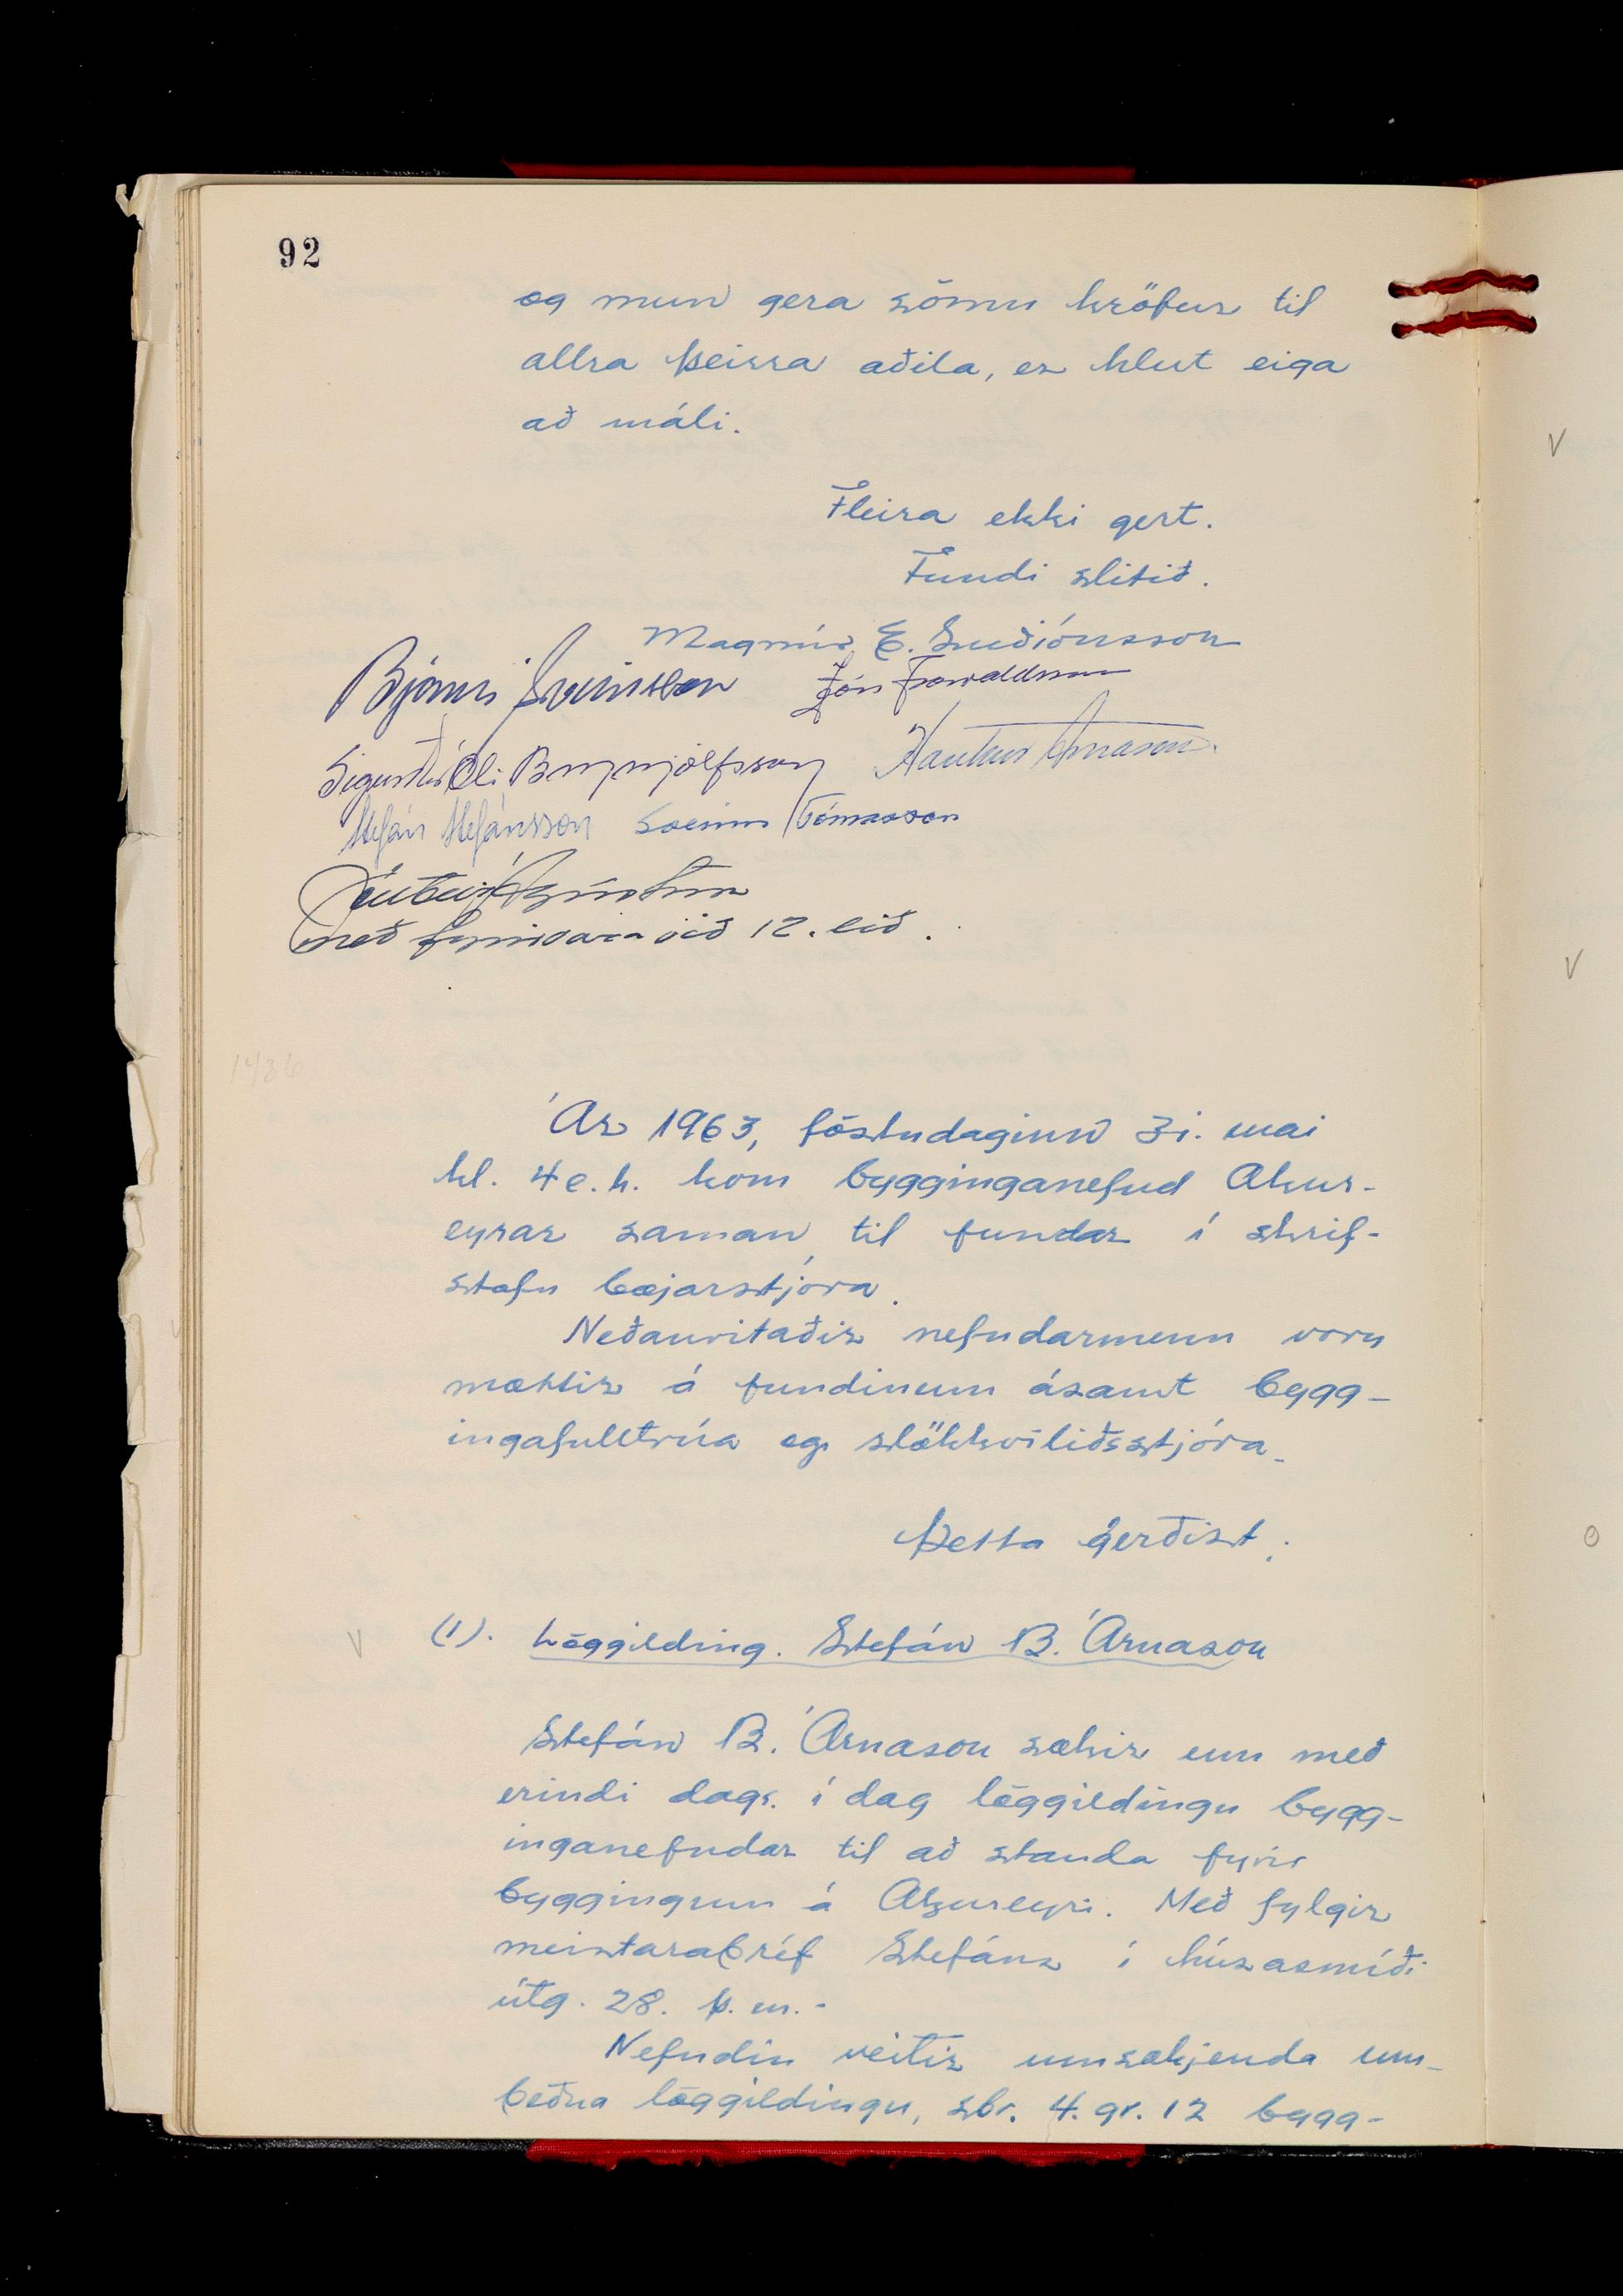 92
og mun gera sömu kröfur til
allra þeirra aðila, er hlut eiga
að máli.
Fleira ekki gert.
Fundi slitið.
Magnús E. Guðjónsson
Bjarni Sveinsson Jón Þorvaldsson
Sigurður Óli Brynjólfsson Haukur Árnason.
Stefán Stefánsson Sveinn Tómasson
með fyrirvara við 12. lið.
1436
Ár 1963, föstudaginn 31. mai
kl. 4 e.h. kom bygginganefnd Akur-
eyrar saman til fundar í skrif-
stofu bæjarstjóra.
Neðanritaðir nefndarmenn voru
mættir á fundinum ásamt bygg-
ingafulltrúa og slökkviliðsstjóra.
Þetta gerðist:
V (1). Löggilding. Stefán B. Árnason
Stefán B. Árnason sækir enn með
erindi dags. í dag löggildingu bygg-
inganefndar til að standa fyrir
byggingum á Akureyri. Með fylgir
meistarabréf Stefáns í húsasmíði
útg. 28. þ.m.-
Nefndin veitir umsækjenda um-
beðna löggildingu, sbr. 4. gr. 12 bygg-
V
V
O